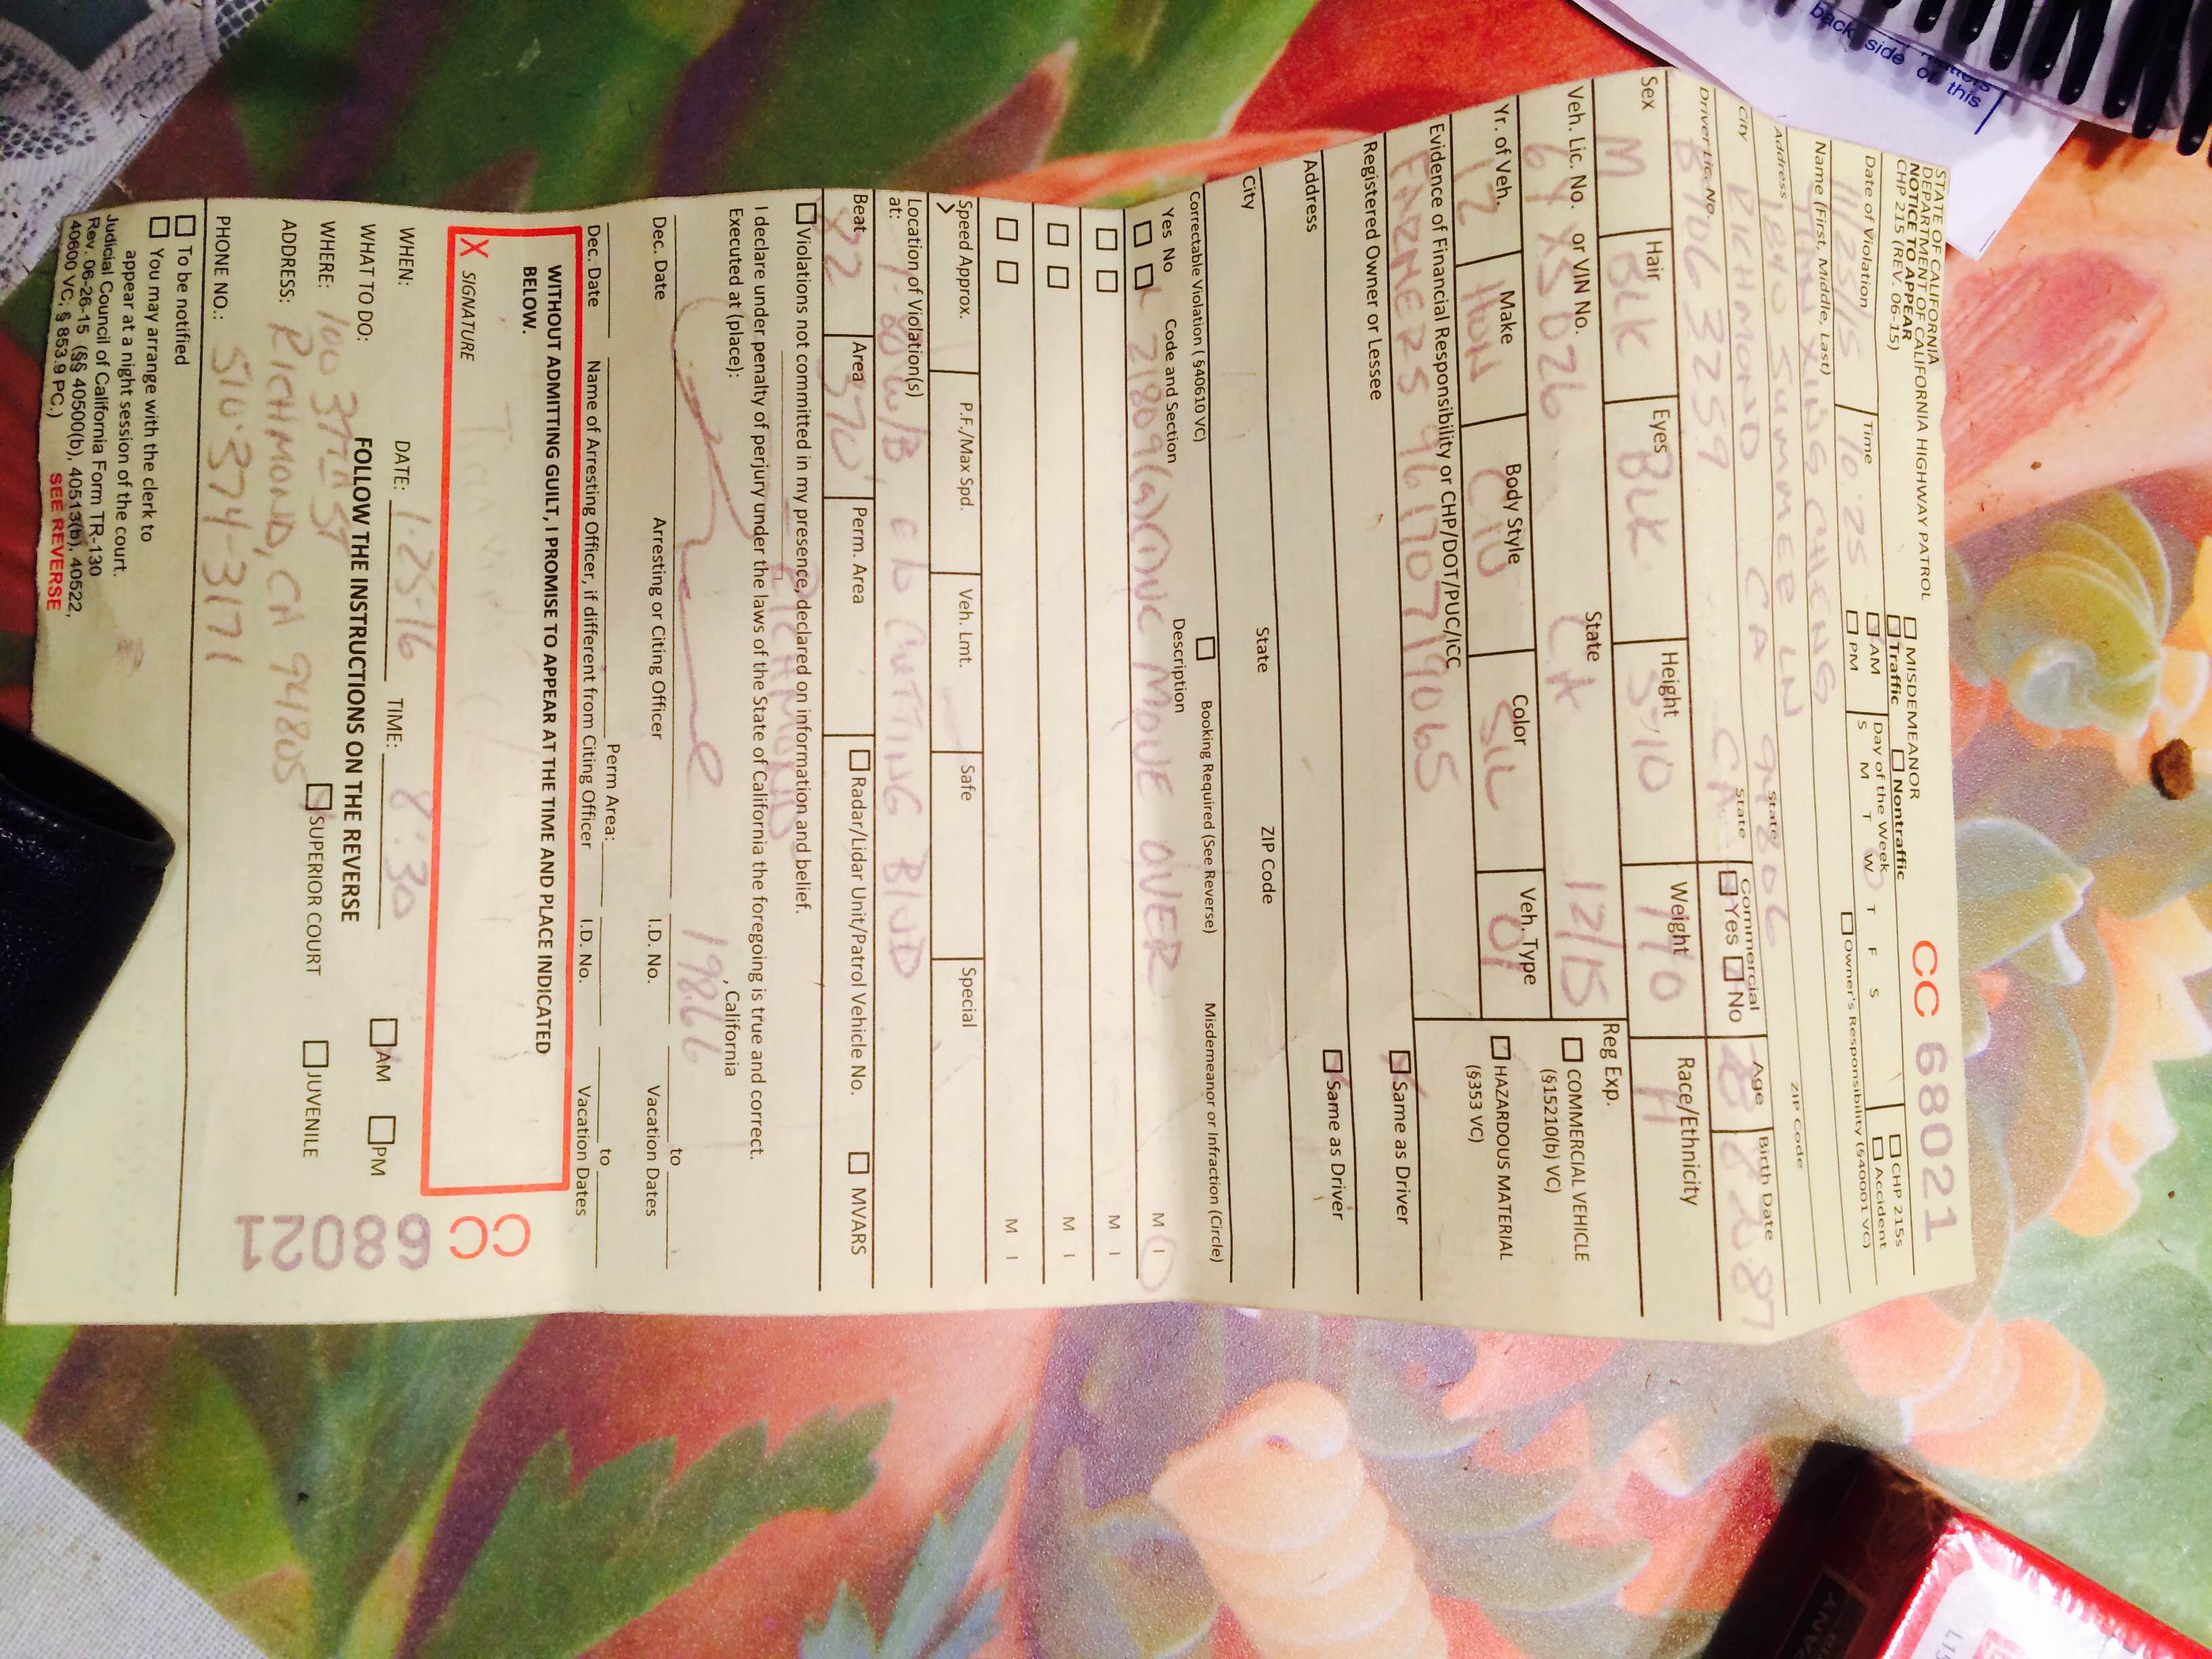 back side of this
STATE OF CALIFORNIA
DEPARTMENT OF CALIFORNIA HIGHWAY PATROL
NOTICE TO APPEAR
CHP 215 (REV. 06-15)
MISDEMEANOR
Traffic Nontraffic
CC 68021
Date of Violation Time AM PM Day of the Week S M T W T F S CHP 215s Accident
11/25/15 10:25
Name (First, Middle, Last) Owner's Responsibility (§40001 VC)
XING CHENG
Address State ZIP Code
1840 SUMMER LN 94806
City State Commercial Yes No Age Birth Date
RICHMOND CA 28 8 28 87
Driver Lic. No. State
CA
Sex Hair Eyes Height Weight Race/Ethnicity
M BLK BLK 5'10 170 H
Veh. Lic. No. or VIN No. State Reg Exp.
6YXS026 CA 12/15
COMMERCIAL VEHICLE
(§15210(b) VC)
Yr. of Veh. Make Body Style Color Veh. Type
12 HON CIV SIL 01
HAZARDOUS MATERIAL
(§353 VC)
Evidence of Financial Responsibility or CHP/DOT/PUC/ICC
FARMERS 96170719065
Registered Owner or Lessee Same as Driver
Address Same as Driver
City State ZIP Code
Correctable Violation (§40610 VC) Booking Required (See Reverse) Misdemeanor or Infraction (Circle)
Yes No Code and Section Description
21809(a)(1)VC MOVE OVER M I
M I
M I
M I
Speed Approx. P.F./Max Spd. Veh. Lmt. Safe Special
Location of Violation(s)
at: I-80 W/B, E/O CUTTING BLVD
Beat Area Perm. Area Radar/Lidar Unit/Patrol Vehicle No. MVARS
370
Violations not committed in my presence, declared on information and belief.
I declare under penalty of perjury under the laws of the State of California the foregoing is true and correct.
Executed at (place): RICHMOND , California
19866 to
Dec. Date Arresting or Citing Officer I.D. No. Vacation Dates
Perm Area: to
Dec. Date Name of Arresting Officer, if different from Citing Officer I.D. No. Vacation Dates
WITHOUT ADMITTING GUILT, I PROMISE TO APPEAR AT THE TIME AND PLACE INDICATED
BELOW.
X SIGNATURE
CC 68021
WHEN: DATE: 1-25-16 TIME: 8:30 AM PM
WHAT TO DO: FOLLOW THE INSTRUCTIONS ON THE REVERSE
WHERE: 100 37TH ST SUPERIOR COURT JUVENILE
ADDRESS: RICHMOND, CA 94805
PHONE NO.: 510-374-3171
To be notified
You may arrange with the clerk to
appear at a night session of the court.
Judicial Council of California Form TR-130
Rev. 06-26-15 (§§ 40500(b), 40513(b), 40522,
40600 VC; § 853.9 PC.) SEE REVERSE